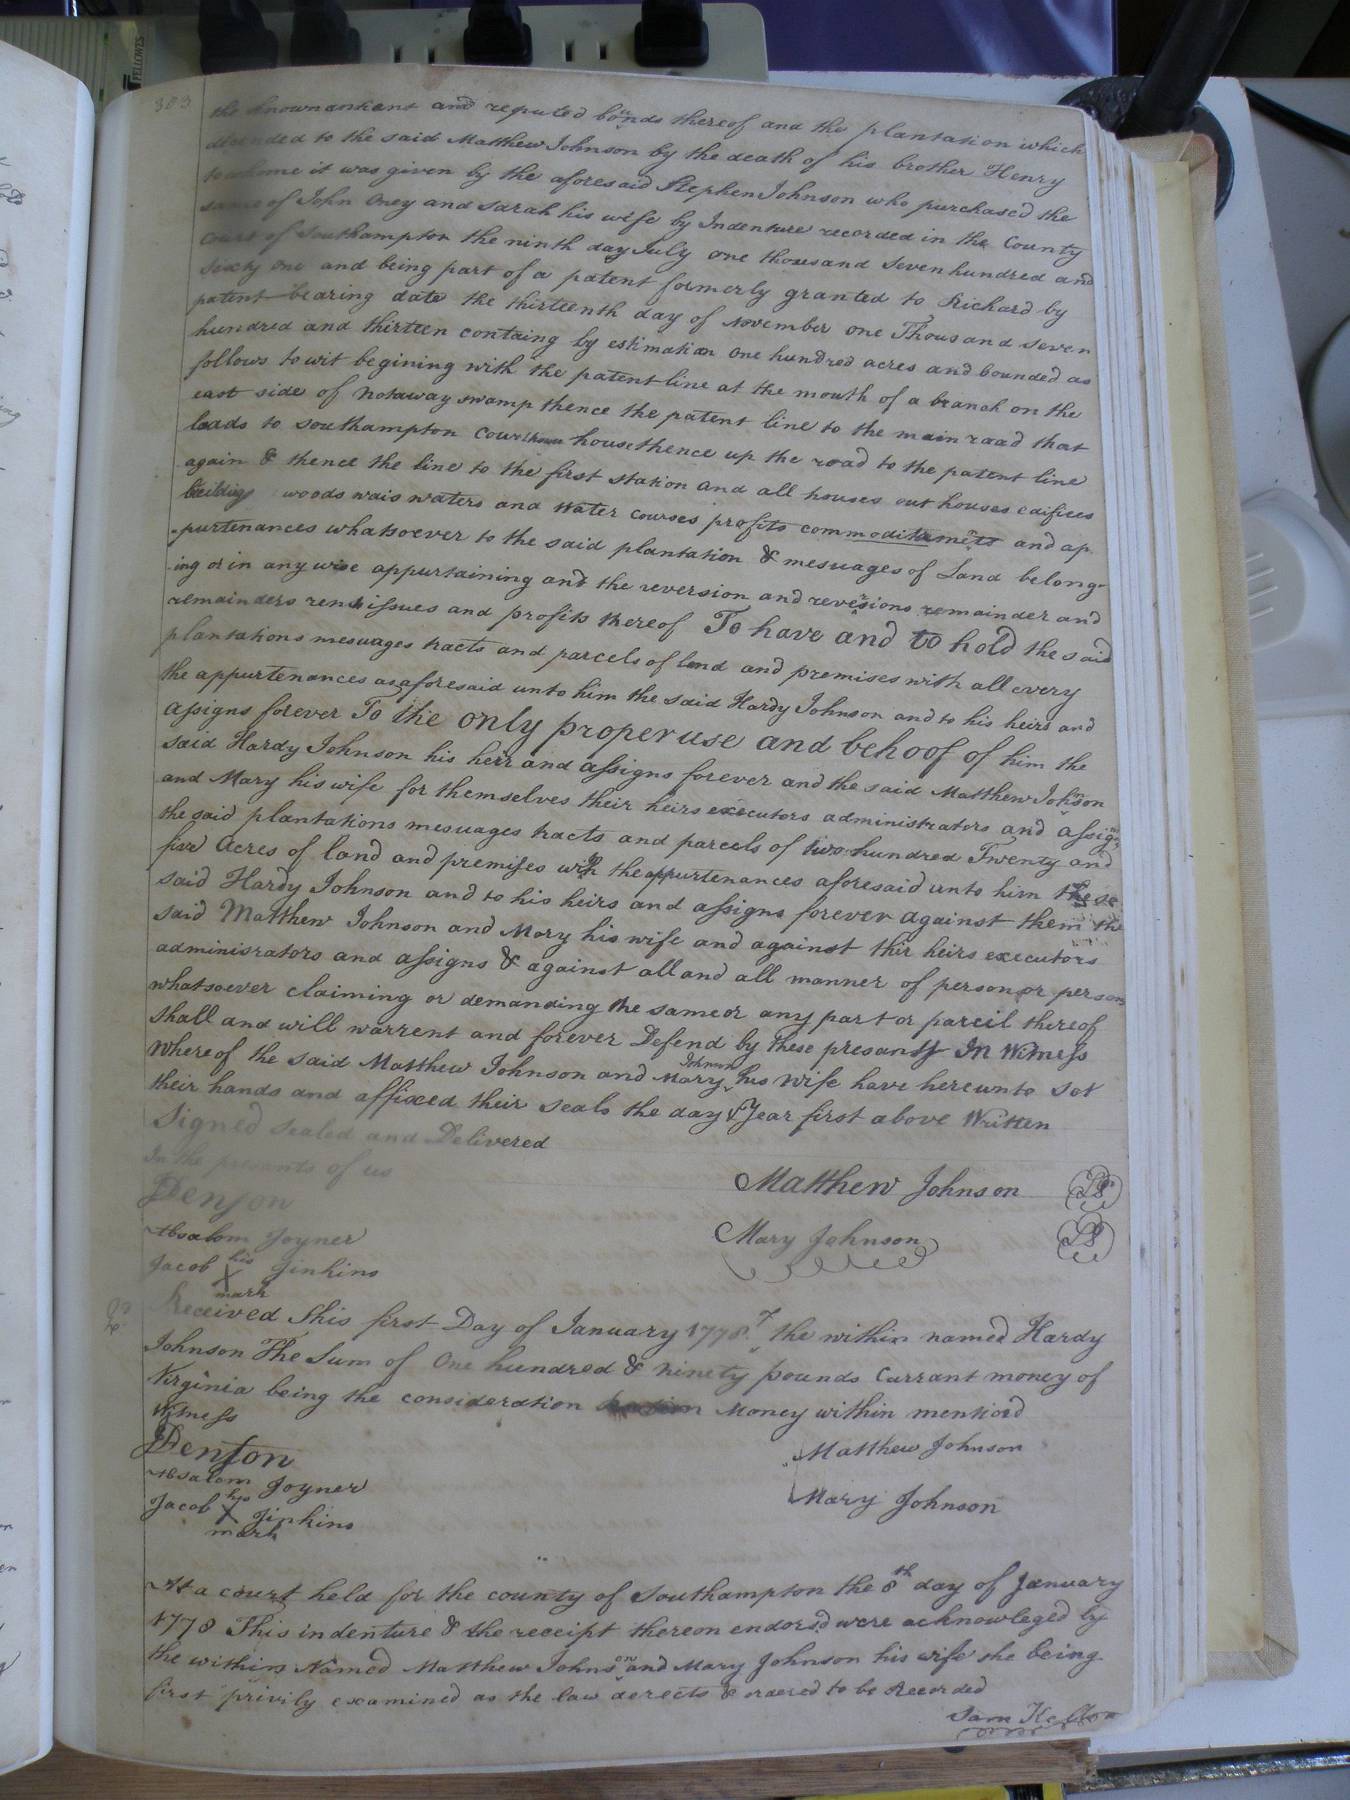 FELLOWES
303
the known ankant and reputed bounds thereof and the plantation which
decended to the said Matthew Johnson by the death of his brother Henry
to whome it was given by the aforesaid Stephen Johnson who purchased the
same of John Oney and Sarah his wife by Indenture recorded in the County
Court of Southampton the ninth day July one thousand Seven hundred and
Sixty one and being part of a patent formerly granted to Richard by
patent bearing date the thirteenth day of November one Thousand seven
hundred and thirteen containg by estimation One hundred acres and bounded as
follows to wit begining with the patent line at the mouth of a branch on the
east side of Notaway swamp thence the patent line to the main road that
leads to Southampton Court house thence up the road to the patent line
again & thence the line to the first station and all houses out houses edifices
buildings woods wais waters and water courses profits commoditements and ap
-purtenances whatsoever to the said plantation & mesuages of Land belong-
ing or in any wise appurtaining and the reversion and reversions remainder and
remainders rents issues and profits thereof To have and to hold the said
plantations mesuages tracts and parcels of land and premises with all every
the appurtenances as aforesaid unto him the said Hardy Johnson and to his heirs and
assigns forever To the only proper use and behoof of him the
said Hardy Johnson his heir and assigns forever and the said Matthew Johnson
and Mary his wife for themselves their heirs executors administrators and assigns
the said plantations mesuages tracts and parcels of two hundred Twenty and
five Acres of land and premises with the appurtenances aforesaid unto him the
said Hardy Johnson and to his heirs and assigns forever against them the
said Matthew Johnson and Mary his wife and against thir heirs executors
administrators and assigns & against all and all manner of person or person
whatsoever claiming or demanding the same or any part or parcil thereof
shall and will warrent and forever Defend by these presants In Witness
Whereof the said Matthew Johnson and Mary Johnson his Wife have hereunto set
their hands and affixed their seals the day & Year first above Written
Signed sealed and Delivered
In the presants of us
Matthew Johnson LS
Denson
Mary Johnson LS
Absalom Joyner
Jacob his X mark Jinkins
Received this first Day of January 1778 the within named Hardy
Johnson The Sum of One hundred & ninety pounds Currant money of
Virginia being the consideration Money within mentiond
Witness
Denson
Matthew Johnson
Absalom Joyner
Mary Johnson
Jacob his X mark Jinkins
At a court held for the county of Southampton the 8th day of January
1778 This indenture & the receipt thereon endorsd were acknowleged by
the within Named Matthew Johnson and Mary Johnson his wife she being
first privily examined as the law derects & ordered to be Recorded
Sam Kello